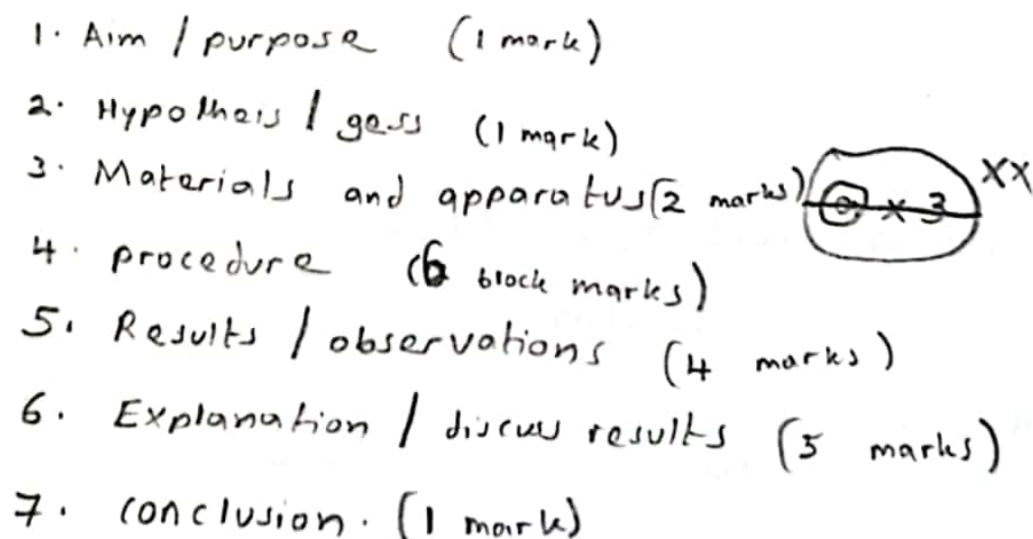 1. Aim / purpose (1 mark)
2. Hypotheis / gess (1 mark)
3. Materials and apparatus (2 marks) XX
4. procedure (6 block marks)
5. Results / observations (4 marks)
6. Explanation / discuss results (5 marks)
7. conclusion. (1 mark)